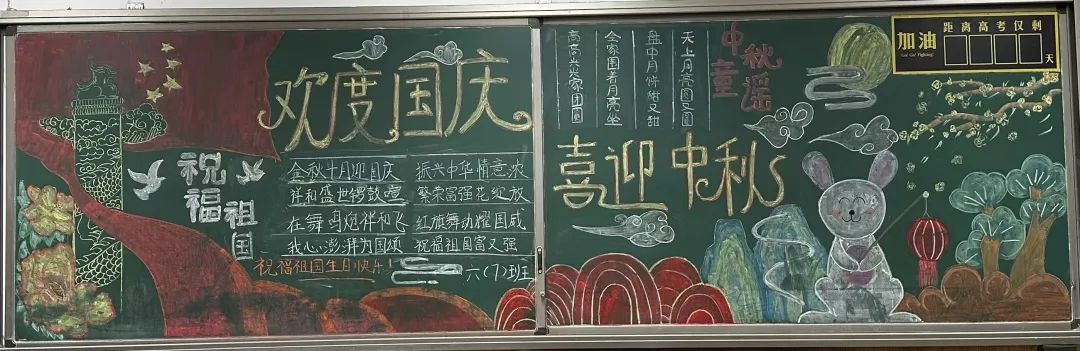 欢度国庆
祝福
祖国
金秋十月迎国庆 振兴中华情意浓
祥和盛世锣鼓 繁荣富强花绽放
在舞鸟炮伴和飞 红旗舞动耀国威
我心澎湃为国颂 祝福祖国富又强
祝福祖国生日快乐!
六(7)班
中秋
童谣
天上月亮圆又圆
盘中月饼甜又甜
全家围着月亮坐
高高兴兴家团圆
喜迎中秋
加油
Go! Go! Fighting!
距离高考仅剩
天